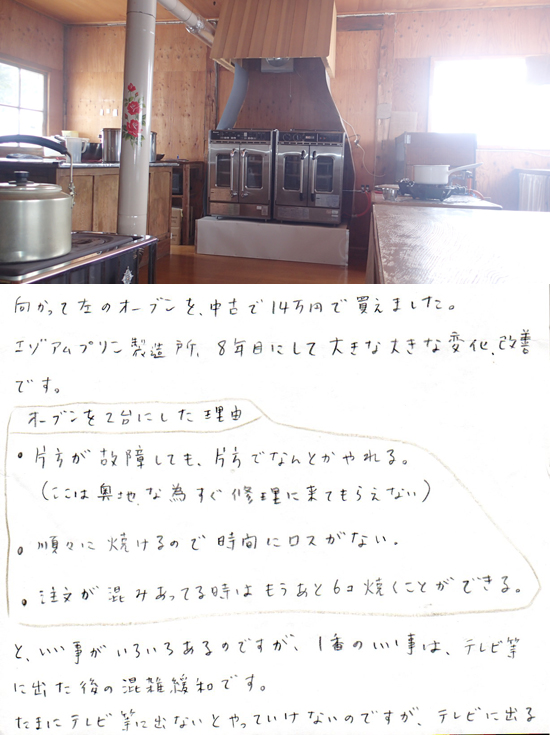 向かって左のオーブンを、中古で14万円で買えました。
エゾアムプリン製造所、8年目にして大きな大きな変化、改善
です。
オーブンを2台にした理由
・片方が故障しても、片方でなんとかやれる。
(ここは奥地な為すぐ修理に来てもらえない)
・順々に焼けるので時間にロスがない。
・注文が混みあってる時はもうあと6コ焼くことができる。
と、いい事がいろいろあるのですが、1番のいい事は、テレビ等
に出た後の混雑緩和です。
たまにテレビ等に出ないとやっていけないのですが、テレビに出る